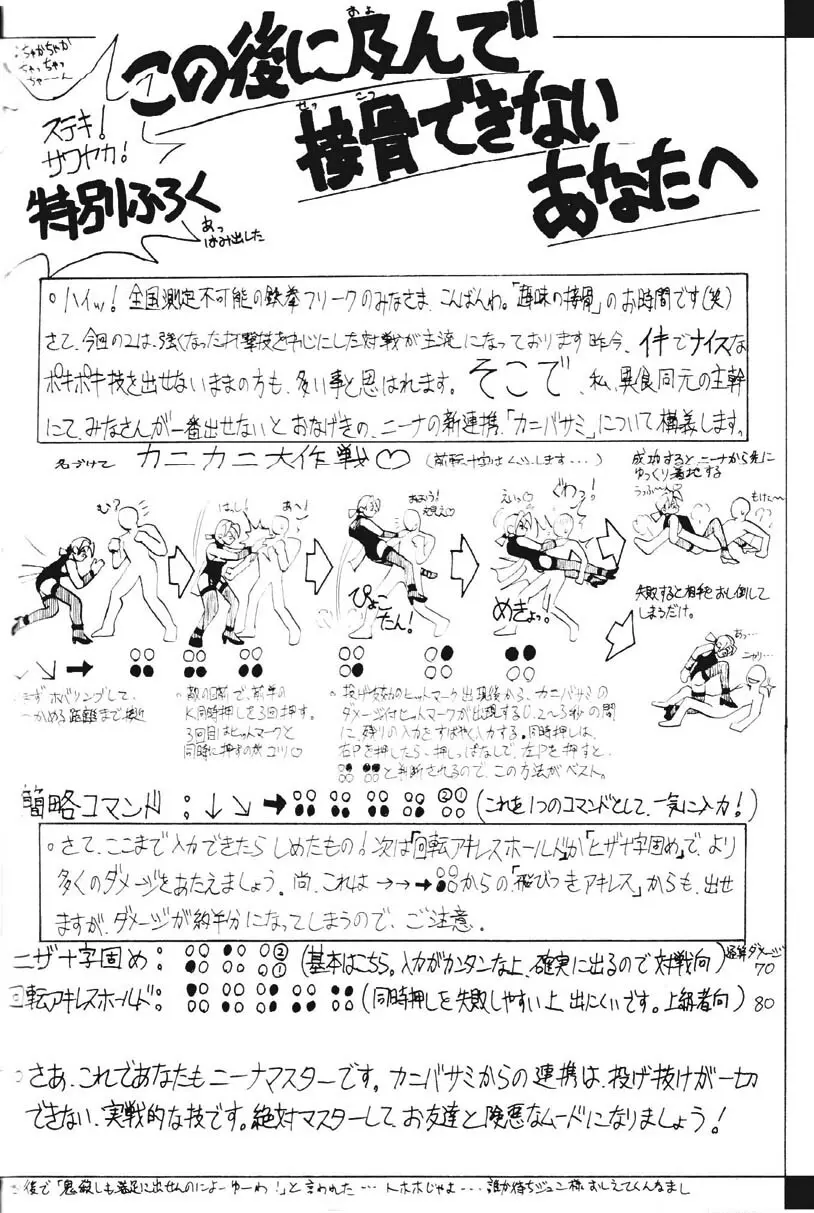 ちゃかちゃか
ちゃっちゃっ
ちゃーーん
この後に及んで
およ
接骨できない
せっこつ
あなたへ
ステキ!
サワヤカ!
特別ふろく
あっ
はみ出した
○ハイッ!全国測定不可能の鉄拳フリークのみなさま、こんばんわ。「趣味の接骨」のお時間です(笑)
さて、今回の2は、強くなった打撃技を中心にした対戦が主流になっております昨今、イキでナイスな
ポキポキ技を出せないままの方も、多い事と思はれます。そこで、私、異食同元の主幹
にて、みなさんが一番出せないとおなげきの、ニーナの新連携、「カニバサミ」について構義します。
名づけて カニカニ大作戦♡(前転十字は
します・・・)
成功すると、ニーナから先に
ゆっくり着地する
うっふ〜ん
もけた〜
む?
はし!
あ〜!
えいっ♡
ぐわっ!
ぴょこ
たん!
めきょっ。
失敗すると相手をおし倒して
しまうだけ。
あっ…
ニヤリ…
まずホバリングして、
つかめる距離まで接近
○敵の目前で、前半の
K同時押しを3回押す。
3回目はヒットマークと
同時に押すのがコツ♡
○投げ有効のヒットマーク出現後から、カニバサミの
ダメージ付ヒットマークが出現する0.2〜3秒の間
に、残りの入力をすばやく入力する。同時押しは、
右Pを押したら、押しっぱなしで、左Pを押すと、
と判断されるので、この方法がベスト。
簡略コマンド:↓↘➡ ②① (これを1つのコマンドとして、一気に入力!)
○さて、ここまで入力できたらしめたもの!次は「回転アキレスホールド」か「ヒザ十字固め」で、より
多くのダメージをあたえましょう。尚、これは→→→からの「飛びつきアキレス」からも、出せ
ますが、ダメージが約半分になってしまうので、ご注意。
ヒザ十字固め: ② ① (基本はこちら。入力がカンタンな上、確実に出るので対戦向)
ダメージ
70
回転アキレスホールド: (同時押しを失敗しやすい上、出にくいです。上級者向) 80
○さあ、これであなたもニーナマスターです。カニバサミからの連携は、投げ抜けが一切
できない、実戦的な技です。絶対マスターして、お友達と険悪なムードになりましょう!
後で「鬼殺しも満足に出せんのによーゆーわ!」と言われた…トホホじゃよ…誰か待ちジュン様おしえてくんなまし